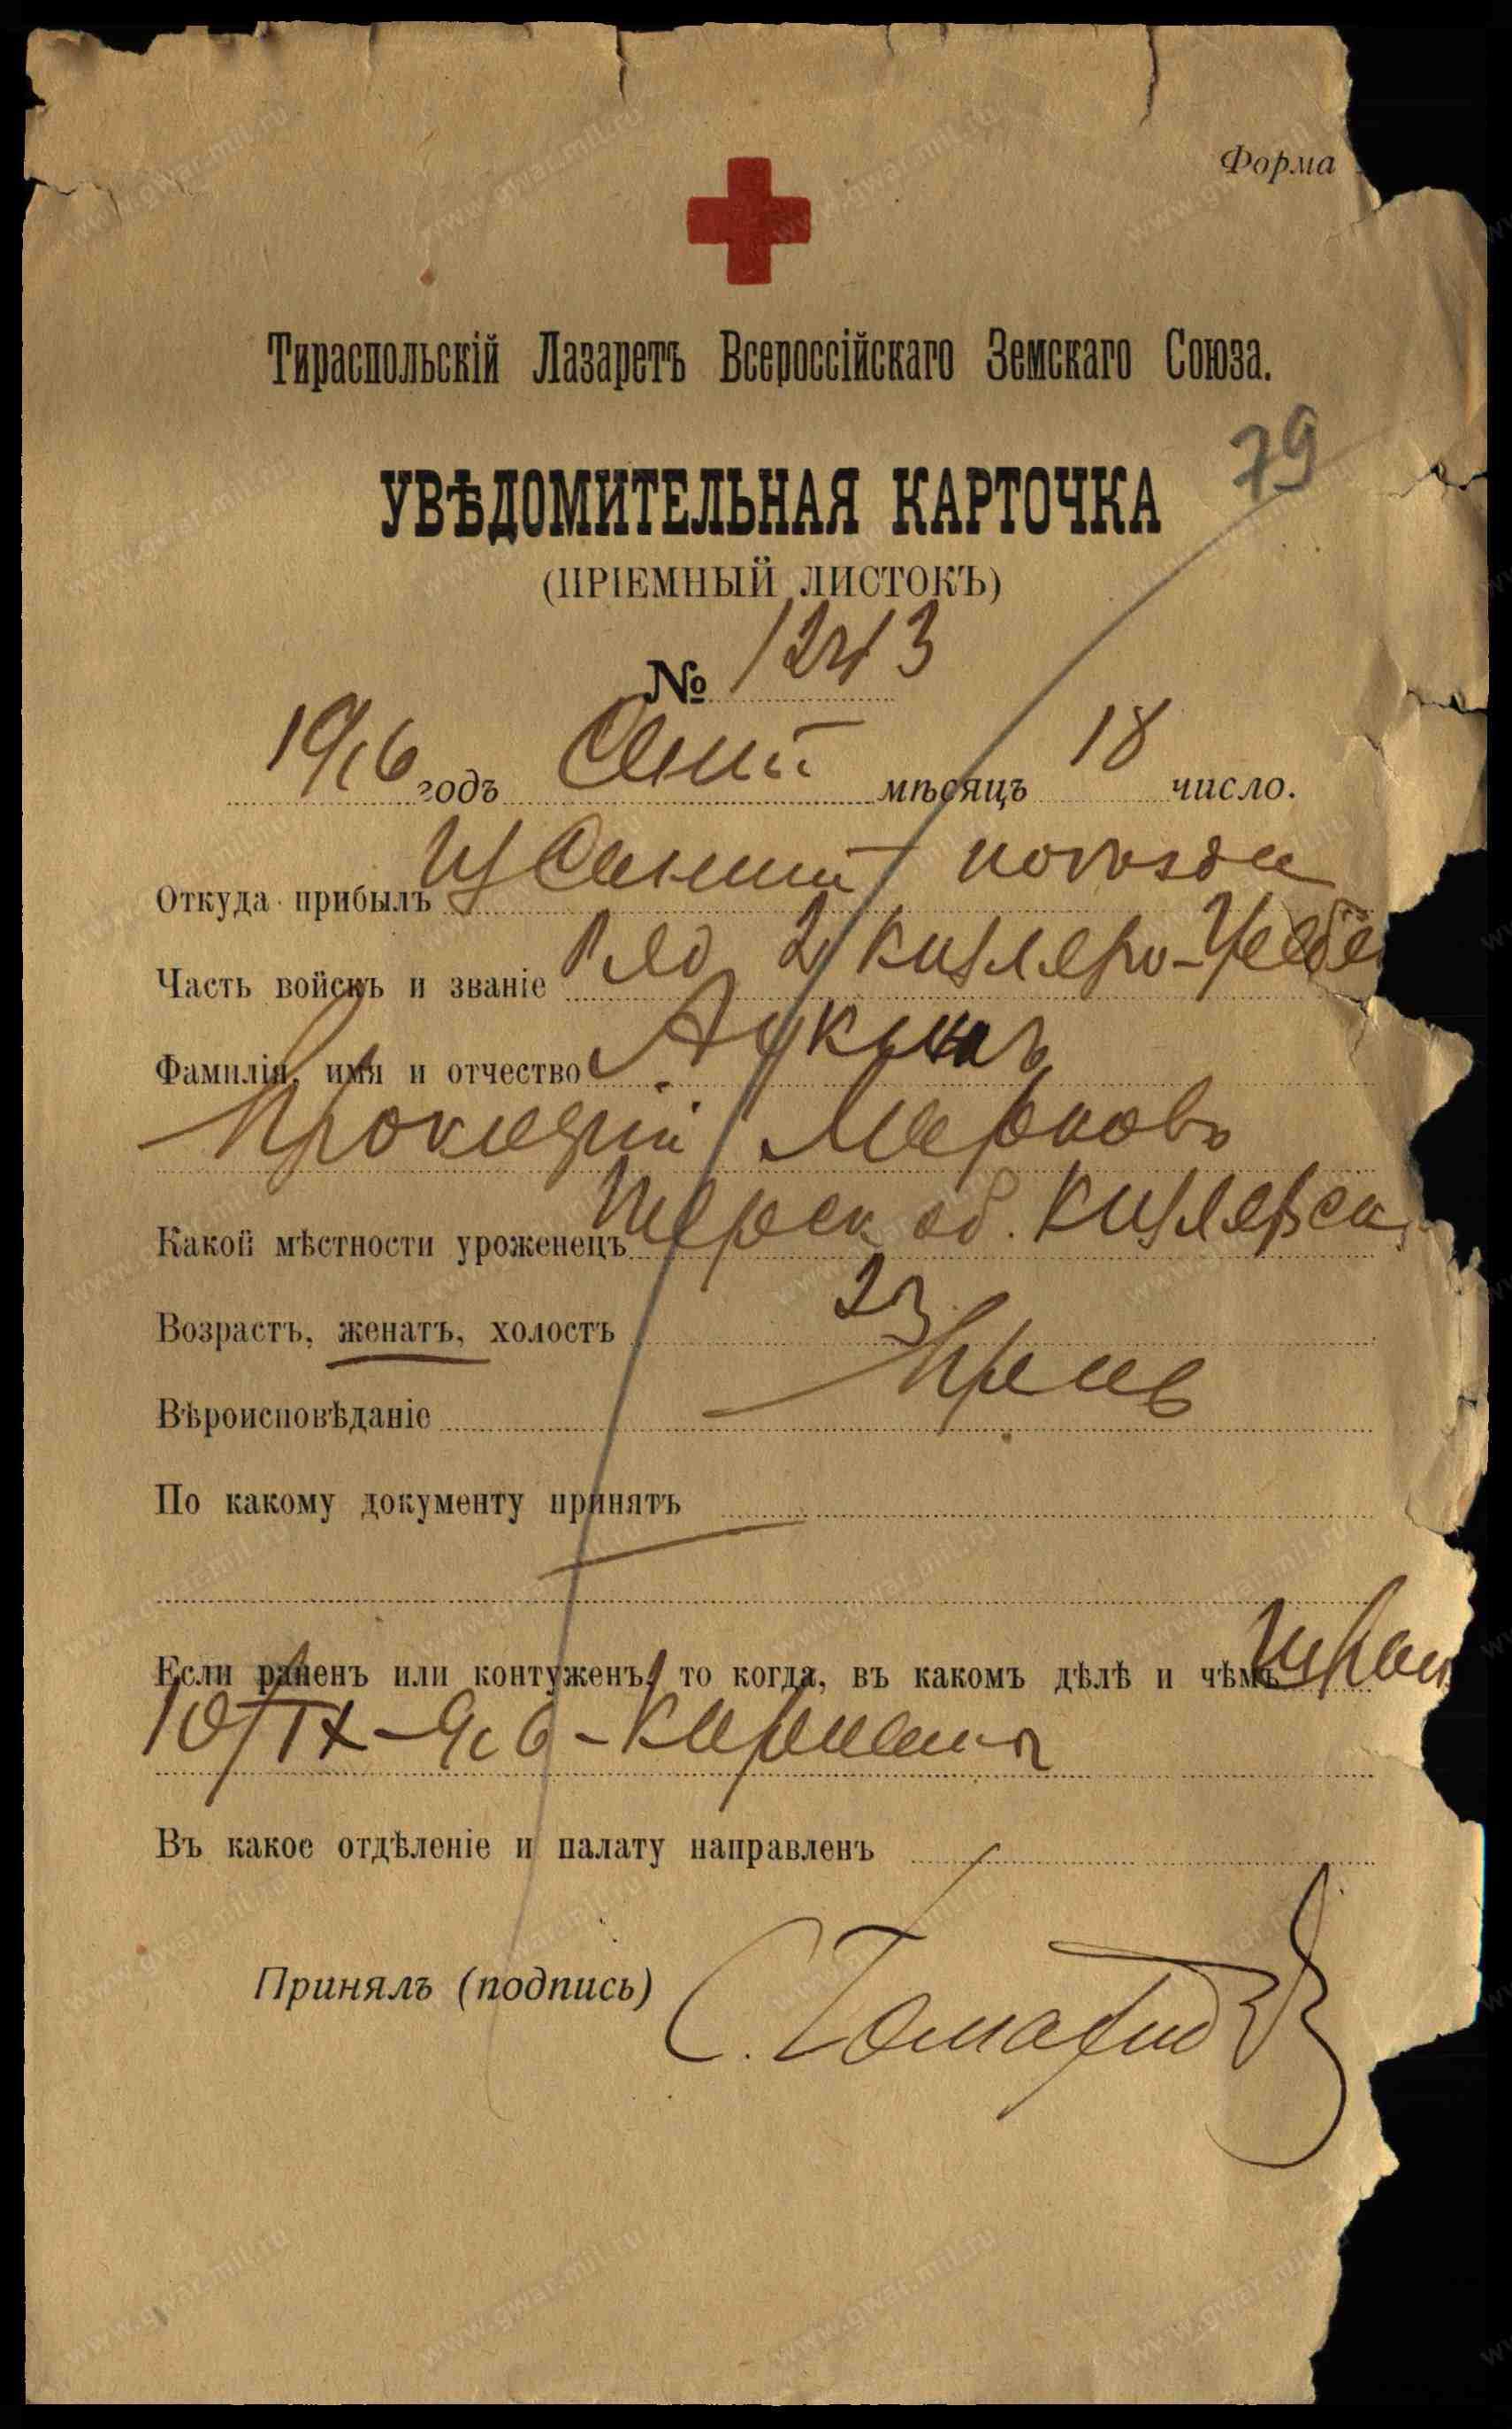 Форма
Тираспольскій Лазаретъ Всероссійскаго Земскаго Союза.
79
УВѢДОМИТЕЛЬНАЯ КАРТОЧКА
(ПРІЕМНЫЙ ЛИСТОКЪ)
№ 1243
1916 годъ Сент мѣсяцъ 18 число.
Откуда прибылъ Из Санит поезда
Часть войскъ и званіе Ряд 2 Кизляро-Гребе
Фамилія, имя и отчество
Прокофій Марковъ
Какой мѣстности уроженецъ Терск об. Кизлярск
Возрастъ, женатъ, холостъ 23
Вѣроисповѣданіе Прав
По какому документу принятъ
Если раненъ или контуженъ, то когда, въ какомъ дѣлѣ и чѣмъ
10/IX-916-
Въ какое отдѣленіе и палату направленъ
Принялъ (подпись) С.